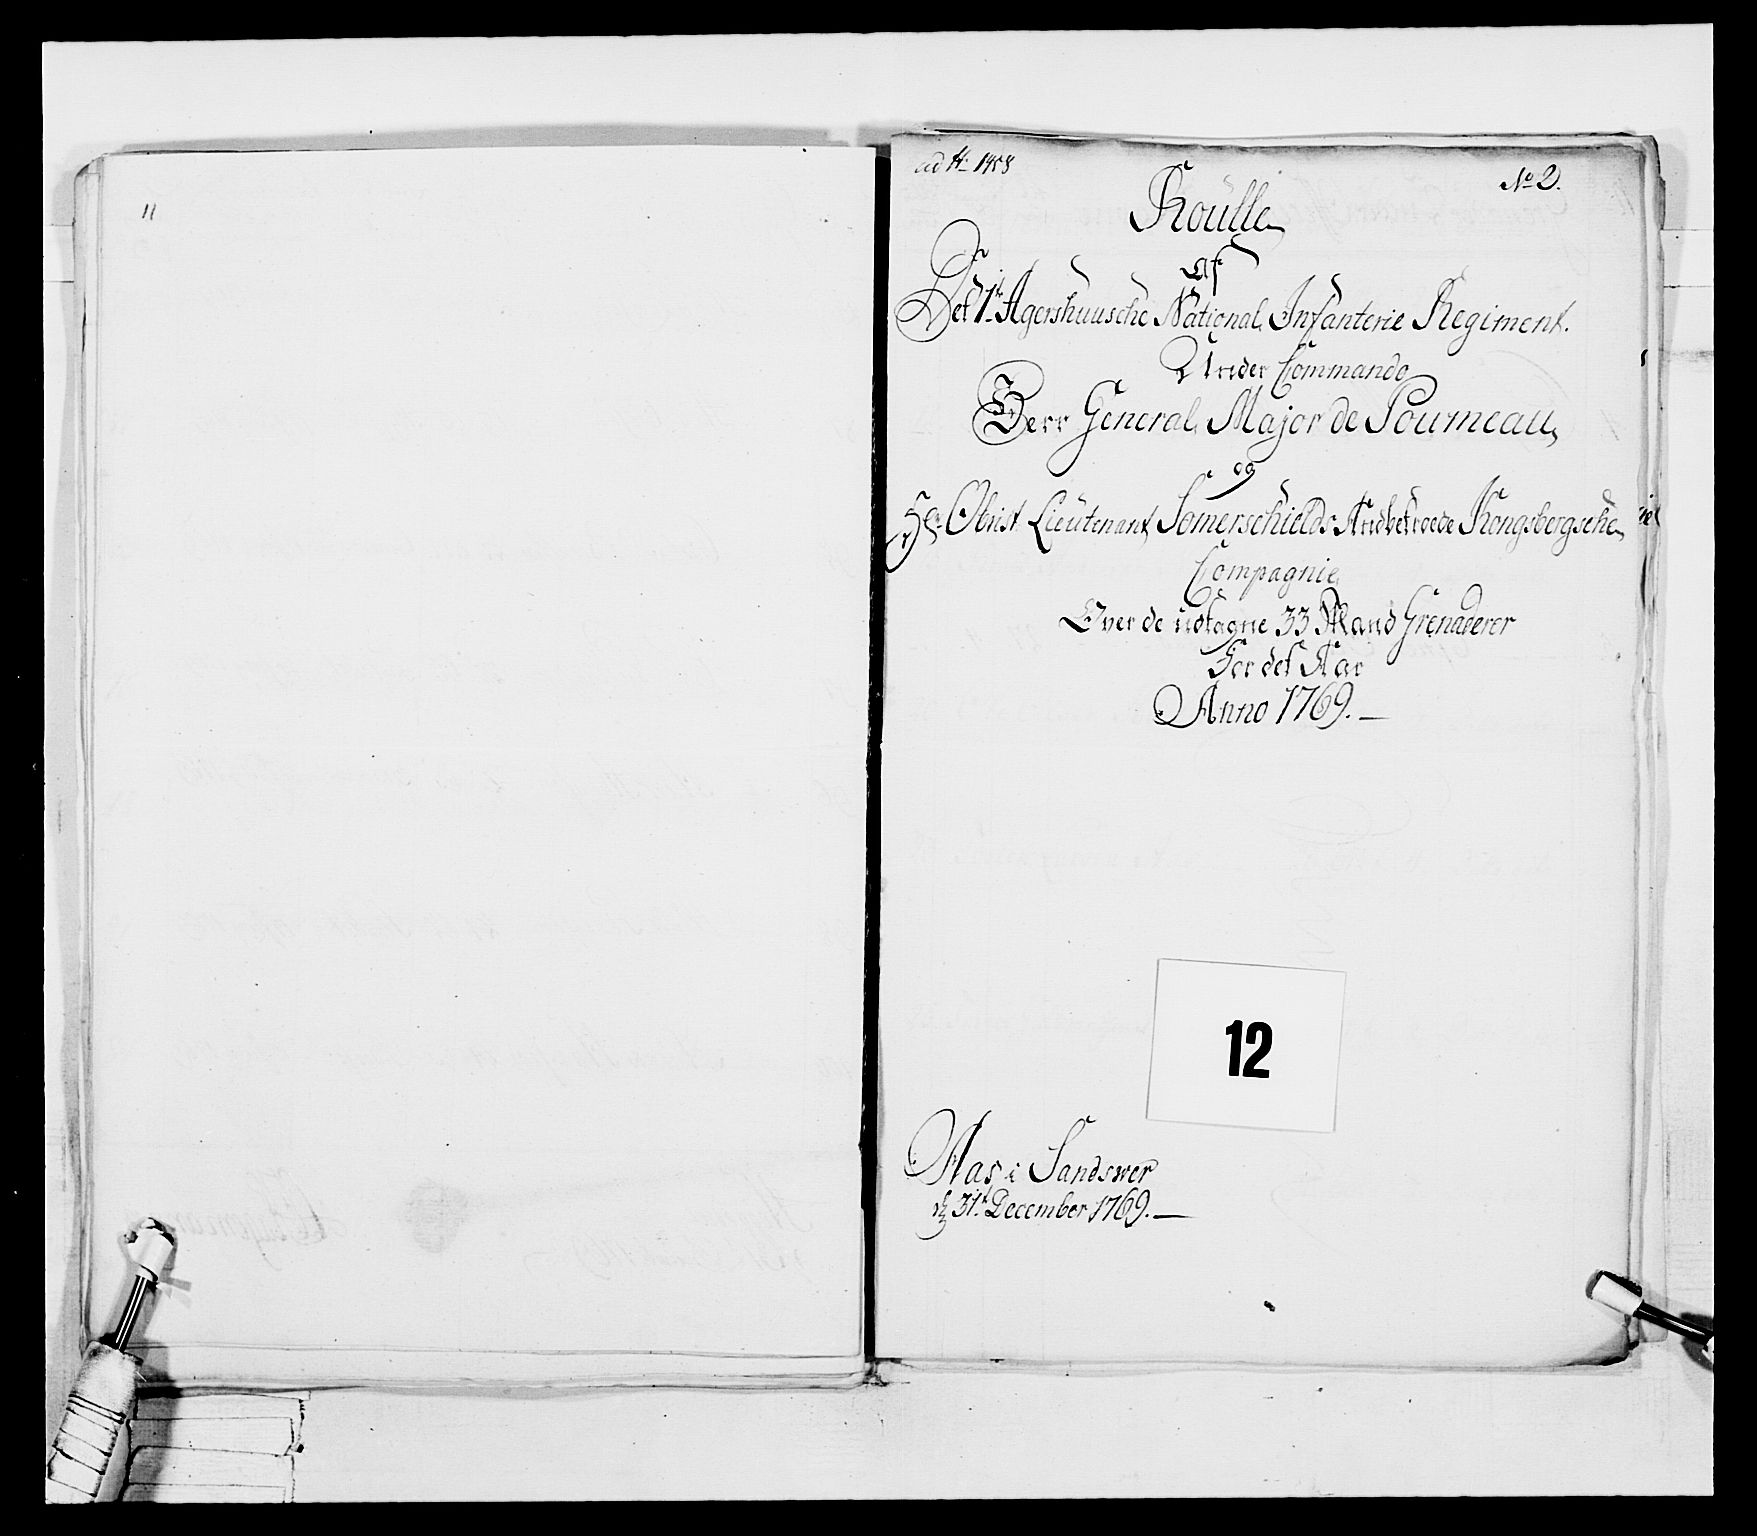 11
ad № 1458
No 2.
Roulle
Af
Det 1te Agershuusche National Infanterie Regiment.
Under Commando
Herr General Major de Pourneau
og
Hr. Obrist Lieutenant Somerschields Andbetroede Kongsbergsche
Compagnie
Over de üdtagne 33 Mand Grenaderer
For det Aar
Anno 1769.
12
Aas i Sandswer
d. 31te December 1769.